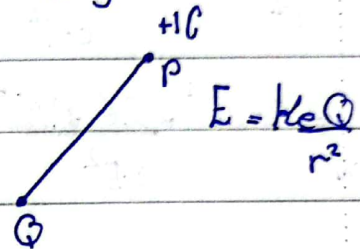 +1C
P
E = KeQ
r²
Q